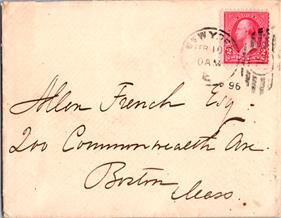 NEW Y
10
96
Allen French Esq.
200 Commonwealth Ave.
Boston
Mass.